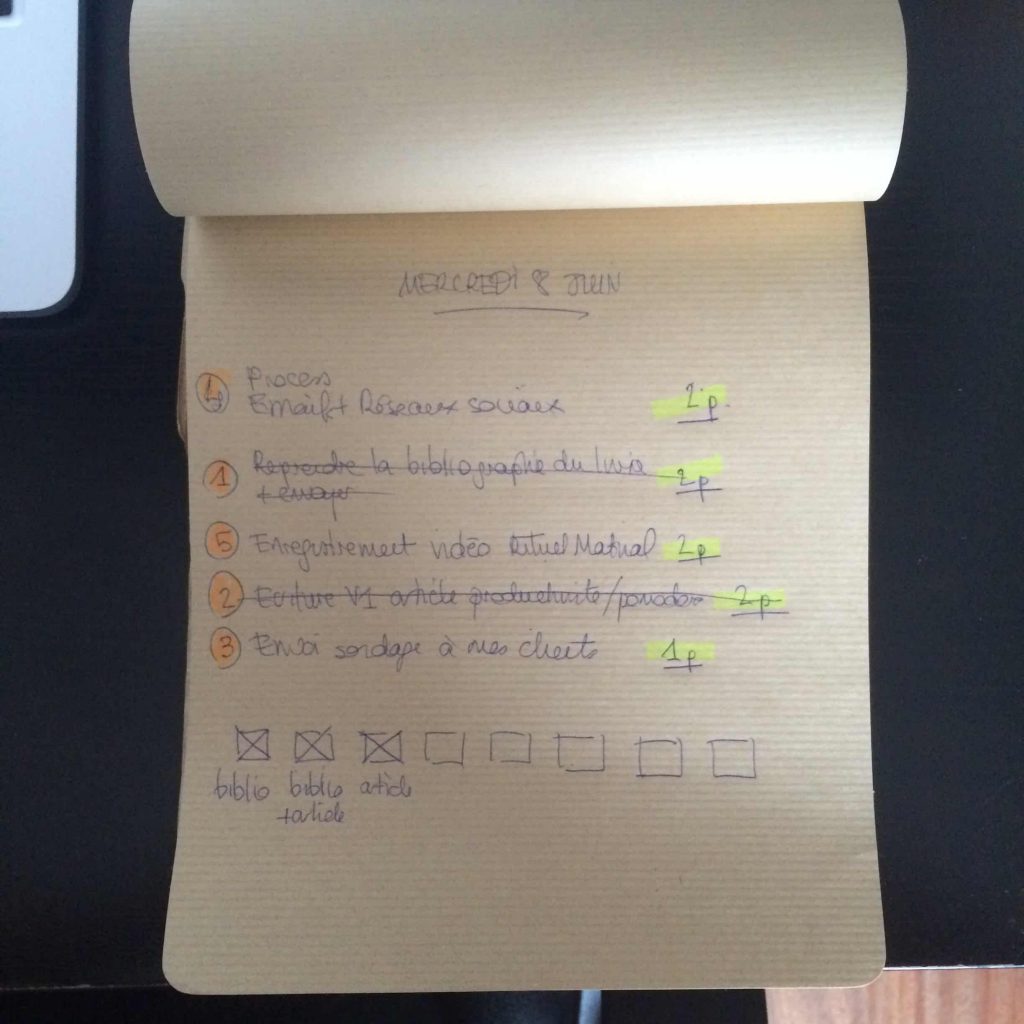 MERCREDI 8 JUIN
4 Process
Email + Réseaux sociaux 2 p.
1 Reprendre la bibliographie du livre 2 p
+ envoyer
5 Enregistrement vidéo Rituel Matinal 2 p
2 Ecriture V1 article productivité/pomodoro 2 p
3 Envoi sondage à mes clients 1 p
biblio biblio article
+article